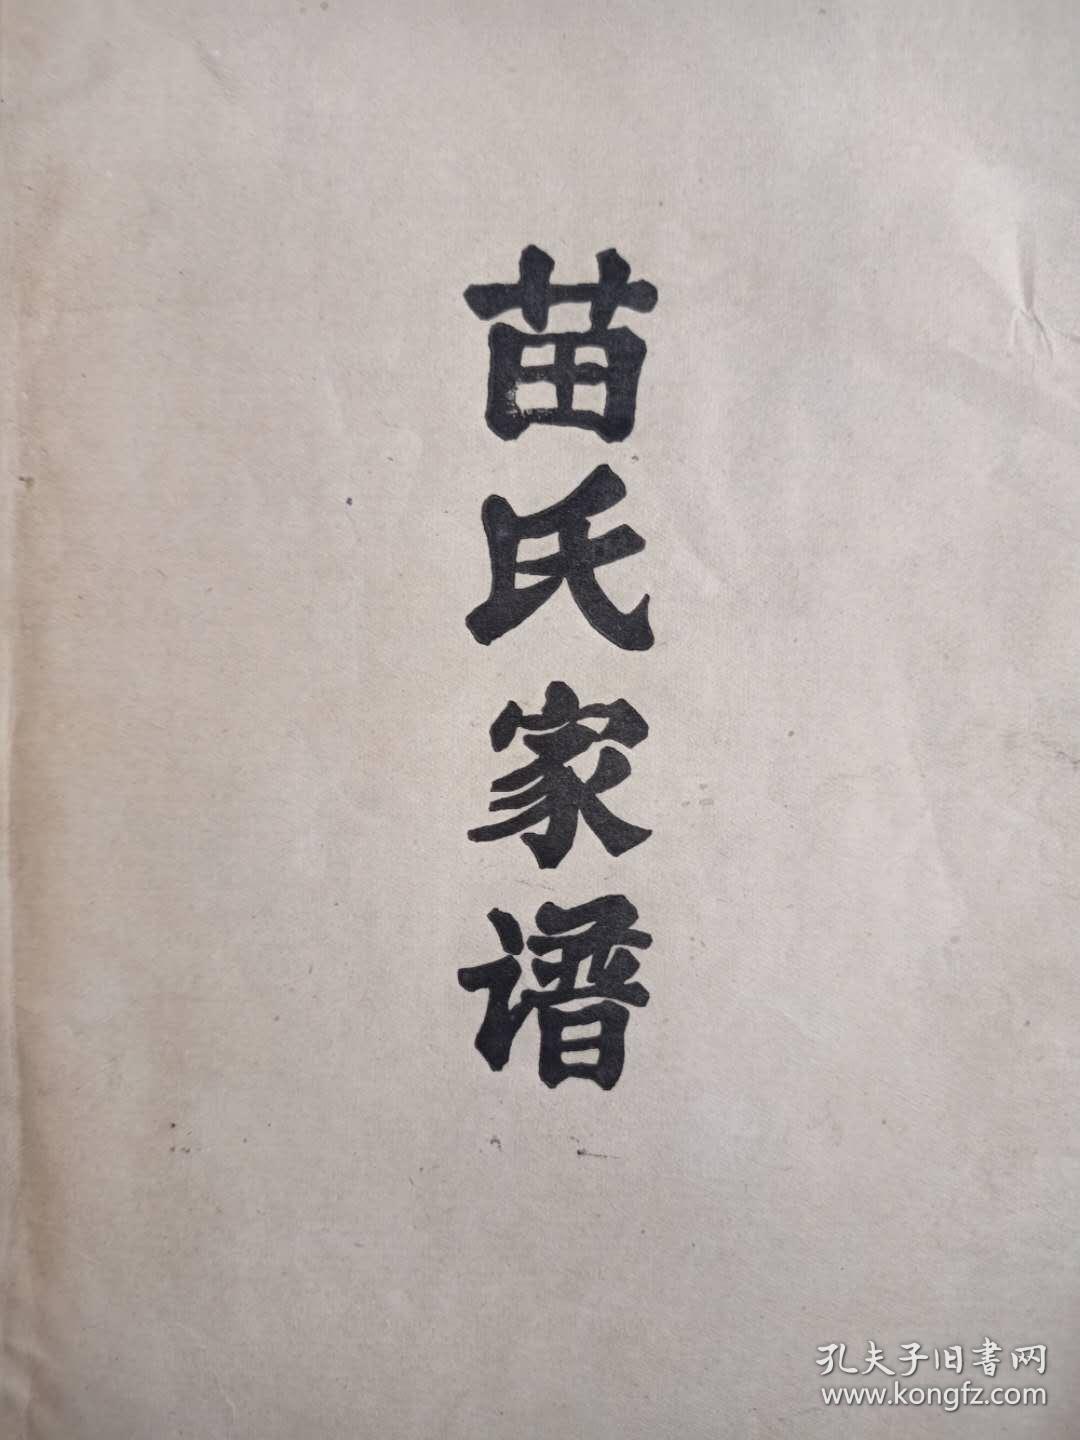 苗氏家谱
孔夫子旧书网
www.kongfz.com